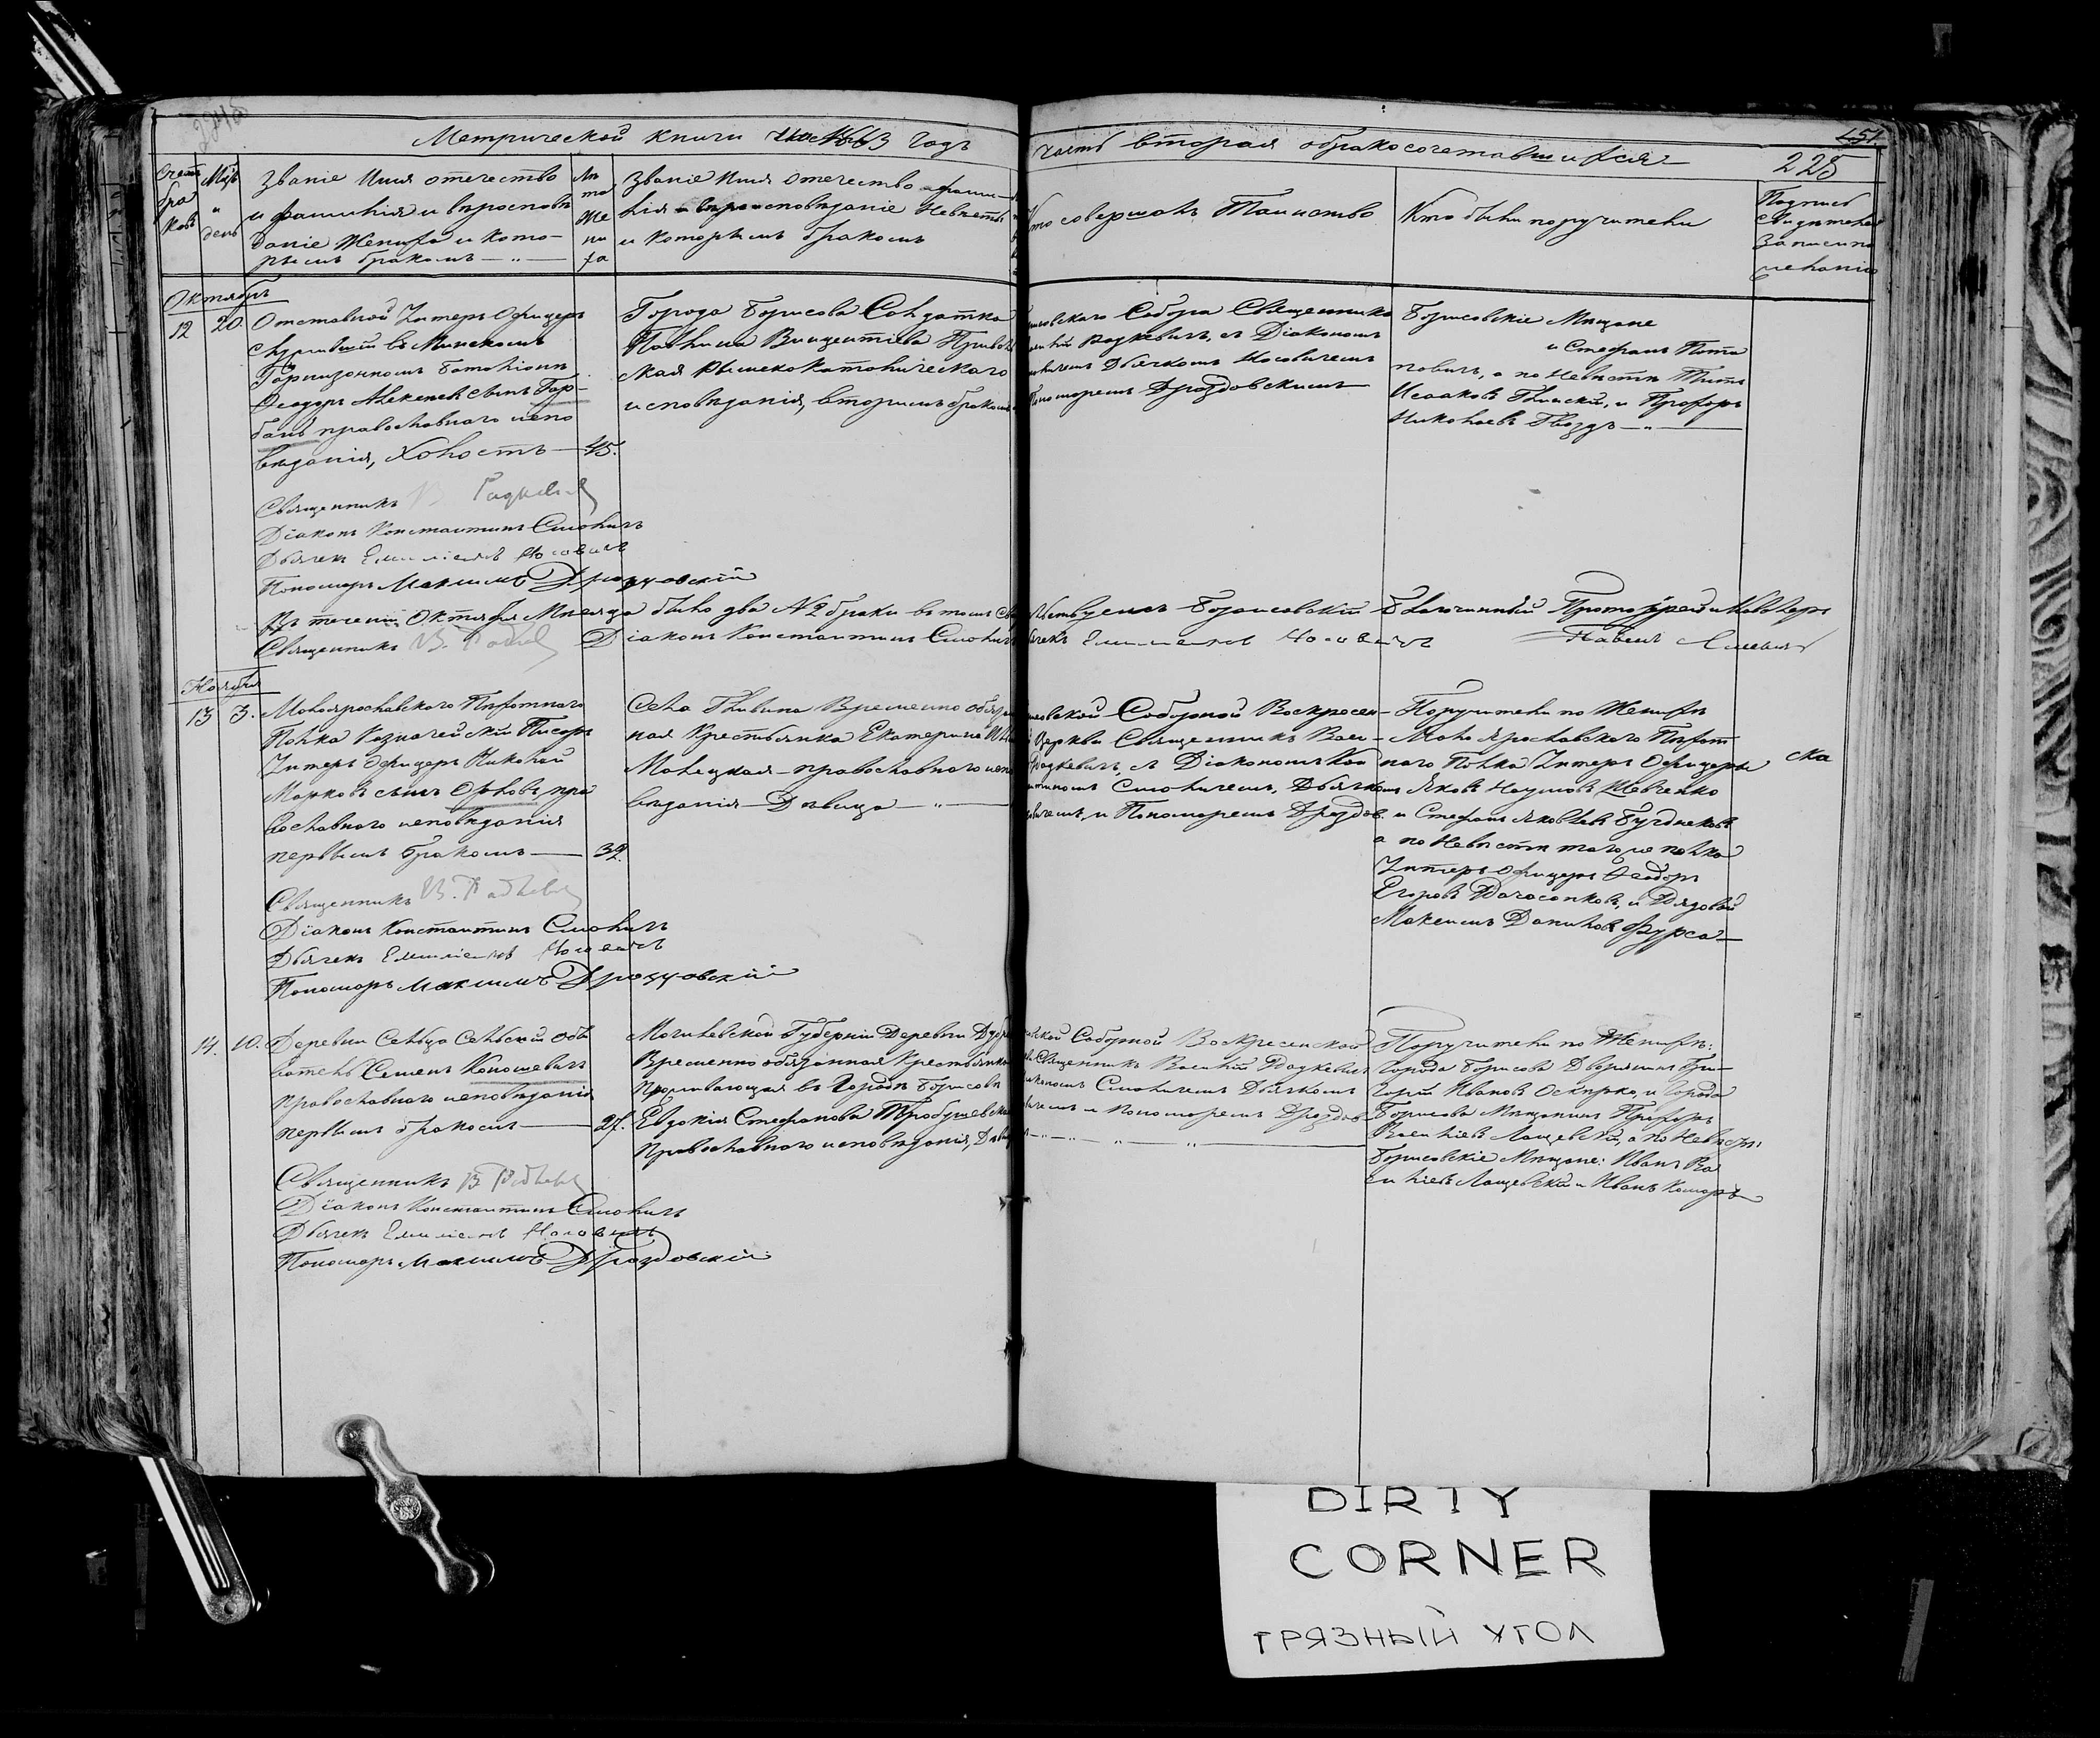 Метрической книги на 1863 годъ
часть вторая о бракосочетавшихся
451
225
Счетъ браковъ
Мѣс. и день
Званіе Имя отечество
и фамилія и вѣроисповѣ
даніе Жениха и кото-
рымъ бракомъ
Лѣта Жениха
Званіе Имя Отечество фами-
лія и вѣроисповѣданіе Невѣсты
и которымъ бракомъ
Кто совершалъ Таинство
Кто были поручители
Подпись
свидѣтелей
записи по
желанію
Октябрь
12
20.
Отставной Унтеръ Офицеръ
служившій въ Минскомъ
Гарнизонномъ Баталіонѣ
Ѳеодоръ Алексеевъ сынъ Гор-
банъ православнаго испо
вѣданія, Холостъ
45.
Города Борисова Солдатка
Павлина Винцентіева
ская Римскокатолическаго
исповѣданія, вторымъ бракомъ
Собора Священникъ
Родкевичъ, съ Діакономъ
Дьячкомъ Носовичемъ
Пономаремъ Дроздовскимъ
Борисовскіе Мѣщане
и Стефанъ Пота
повичъ, а по Невѣстѣ Титъ
Исааковъ и Профоръ
Николаевъ Гвоздь
Священникъ В. Родкевичъ
Діаконъ Константинъ Смоличъ
Дьячекъ Емиліанъ Носовичъ
Пономарь Максимъ Дроздовскій
Въ теченіи Октября Мѣсяца было два № 2 браки въ томъ
Свидѣтельствуемъ Борисовскій Благочинный Протоіерей и Кавалеръ
Священникъ В. Родкевичъ Діаконъ Константинъ Смоличъ
Дьячекъ Емиліанъ Носовичъ
Павелъ
Ноября
13
3.
Малоярославскаго Пѣхотнаго
Полка Казначейскій Писарь
Унтеръ Офицеръ Николай
Марковъ сынъ Орловъ, пра
вославнаго исповѣданія
первымъ бракомъ
32.
Села Гливина Временно обязан
ная Крестьянка Екатерина
Малецкая православнаго испо
вѣданія Дѣвица
Соборной Воскресен-
Церкви Священникъ Васи-
Родкевичъ, съ Діакономъ Кон
Смоличемъ, Дьячкомъ
и Пономаремъ Дроздов
Поручители по Женихѣ
Мало Ярославскаго Пѣхот
наго Полка Унтеръ Офицеры
Яковъ Наумовъ Шевченко
и Стефанъ Яковлевъ
а по Невѣстѣ тогоже полка
Унтеръ Офицеръ Ѳеодоръ
Егоровъ и Рядовой
Максимъ Даниловъ Фурса
Священникъ В. Родкевичъ
Діаконъ Константинъ Смоличъ
Дьячекъ Емиліанъ Носовичъ
Пономарь Максимъ Дроздовскій
14.
10.
Деревни Сельца Сельскій Обы
ватель Семенъ Коношевичъ
православнаго исповѣданія
первымъ бракомъ
27.
Могилевской Губерніи Деревни
Временно обязанная Крестьянка
проживающая въ Городѣ Борисовѣ
Евдокія Стефанова
Православнаго исповѣданія, Дѣвица
Соборной Воскресенской
Священникъ Василій Родкевичъ
Смоличемъ Дьячкомъ
и Пономаремъ Дроздов
Поручители по Женихѣ:
Города Борисова Дворянинъ Гри-
горій Ивановъ Оскирко, и Города
Борисова Мѣщанинъ Профоръ
Васильевъ а по Невѣстѣ:
Борисовскіе Мѣщане: Иванъ Ва
сильевъ и Иванъ Комаръ
Священникъ В. Родкевичъ
Діаконъ Константинъ Смоличъ
Дьячекъ Емиліанъ Носовичъ
Пономарь Максимъ Дроздовскій
DIRTY
CORNER
ГРЯЗНЫЙ УГОЛ